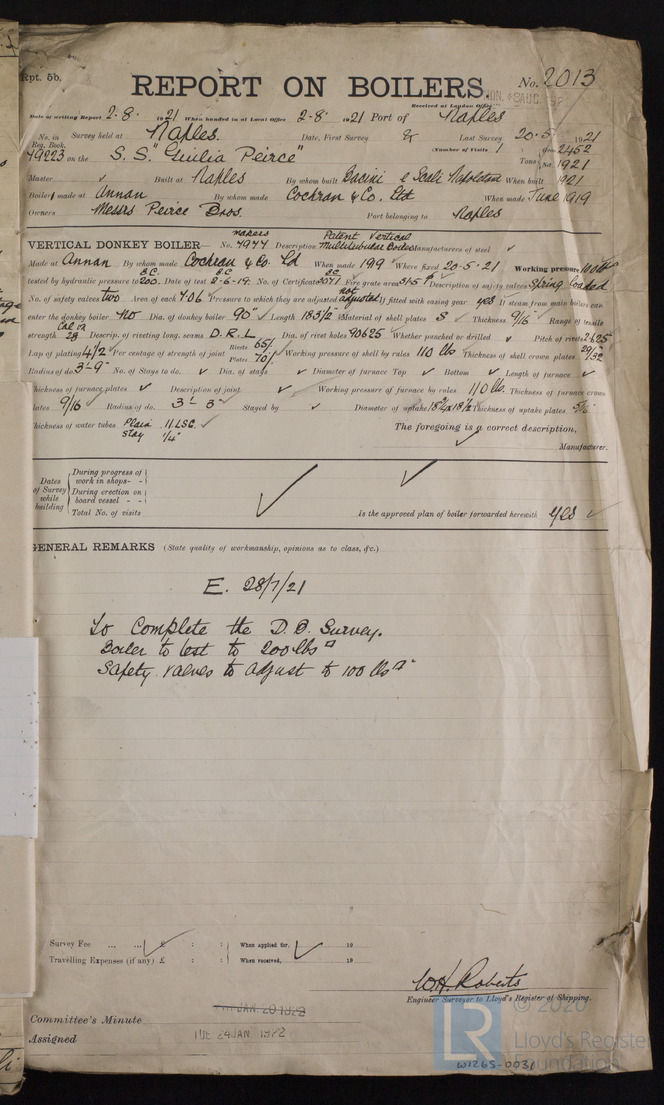 Rpt. 5b.
REPORT ON BOILERS.
No. 2013
Received at London Office
Date of writing Report 2-8- 1921 When handed in at Local Office 2-8- 1921 Port of Naples
No. in Survey held at Naples. Date, First Survey & Last Survey 20-5 1921
Reg. Book. (Number of Visits 1) Gross 2452
49223 on the S.S. "Giulia Peirce" Tons Net 1921
Master Built at Naples By whom built Bacini e Scali Napoletani When built 1921
Boiler made at Annan By whom made Cochran & Co. Ltd When made June 1919
Owners Messrs Peirce Bros. Port belonging to Naples
VERTICAL DONKEY BOILER— Makers No. 4977 Description Patent Vertical Multitubular Boiler Manufacturers of steel
Made at Annan By whom made Cochran & Co. Ld When made 1919 Where fixed 20-5-21 Working pressure 100 lbs
tested by hydraulic pressure to B.C. 200. Date of test B.C. 2-6-19. No. of Certificate B.C. Fire grate area Description of safety valves Spring loaded
No. of safety valves two Area of each 7.06 Pressure to which they are adjusted not adjusted If fitted with easing gear yes If steam from main boilers can
enter the donkey boiler No Dia. of donkey boiler 90" Length Material of shell plates S Thickness 9/16" Range of tensile
strength Descrip. of riveting long. seams D.R.L Dia. of rivet holes .90625 Whether punched or drilled Pitch of rivets 2.625
Lap of plating 4 1/2" Per centage of strength of joint Rivets 65% Plates 70% Working pressure of shell by rules 110 lbs Thickness of shell crown plates 29/32
Radius of do. 3'-9" No. of Stays to do. Dia. of stays Diameter of furnace Top Bottom Length of furnace
Thickness of furnace plates Description of joint Working pressure of furnace by rules 110 lb. Thickness of furnace crown
plates 9/16 Radius of do. 3'- 3" Stayed by Diameter of uptake Thickness of uptake plates
Thickness of water tubes Plain 11 LSG.
Stay 1/4" The foregoing is a correct description,
Manufacturer.
Dates of Survey while building
During progress of work in shops- -
During erection on board vessel - -
Total No. of visits
Is the approved plan of boiler forwarded herewith yes
GENERAL REMARKS (State quality of workmanship, opinions as to class, &c.)
E. 28/7/21
To Complete the D.B. Survey.
Boiler to test to 200 lbs □"
Safety valves to adjust to 100 lbs □"
Survey Fee ... ... £ : : When applied for, 19
Travelling Expenses (if any) £ : : When received, 19
W.H. Roberts
Engineer Surveyor to Lloyd's Register of Shipping.
Committee's Minute FRI. JAN. 20 1922
Assigned TUE. 24 JAN. 1922
© 2020
LR
Lloyd's Register
Foundation
W1265-0031